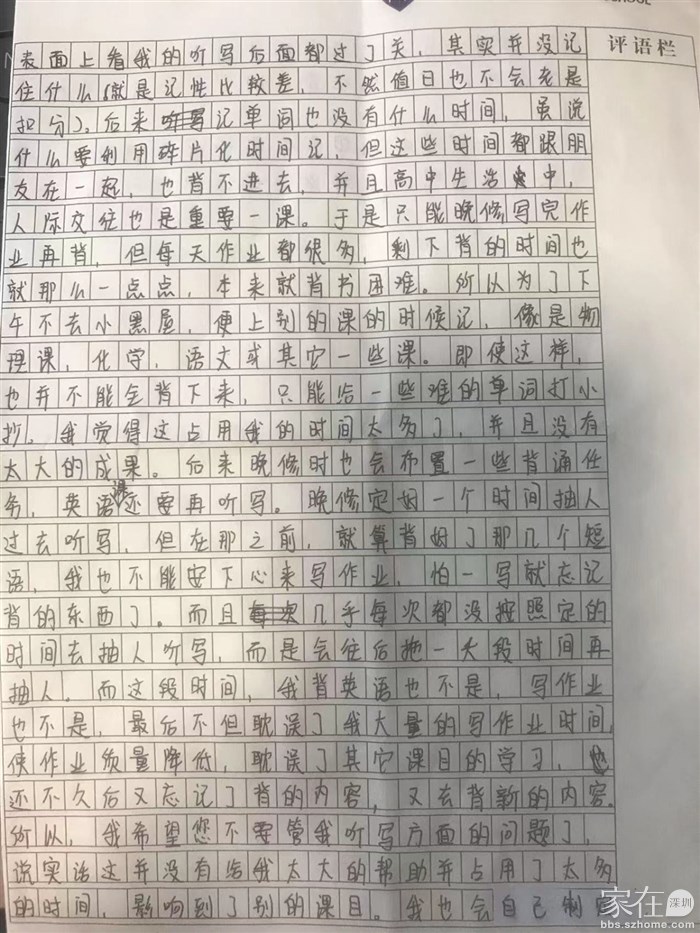 SCHOOL
评语栏
表面上看我的听写后面都过了关，其实并没记
住什么（就是记性比较差，不然值日也不会老是
扣分）。后来听写记单词也没有什么时间，虽说
什么要利用碎片化时间记，但这些时间都跟朋
友在一起，也背不进去，并且高中生活中，
人际交往也是重要一课。于是只能晚修写完作
业再背，但每天作业都很多，剩下背的时间也
就那么一点点，本来就背书困难。所以为了下
午不去小黑屋，便上别的课的时候记，像是物
理课，化学，语文或其它一些课。即使这样，
也并不能全背下来，只能给一些难的单词打小
抄。我觉得这占用我的时间太多了，并且没有
太大的成果。后来晚修时也会布置一些背诵任
务，英语课还要再听写。晚修定好一个时间抽人
过去听写，但在那之前，就算背好了那几个短
语，我也不能安下心来写作业，怕一写就忘记
背的东西了。而且每次几乎每次都没按照定的
时间去抽人听写，而是会往后拖一大段时间再
抽人。而这段时间，我背英语也不是，写作业
也不是，最后不但耽误了我大量的写作业时间，
使作业质量降低，耽误了其它课目的学习，
还不久后又忘记了背的内容，又去背新的内容。
所以，我希望您不要管我听写方面的问题了，
说实话这并没有给我太大的帮助并占用了太多
的时间，影响到了别的课目。我也会自己制定
家在深圳
bbs.szhome.com